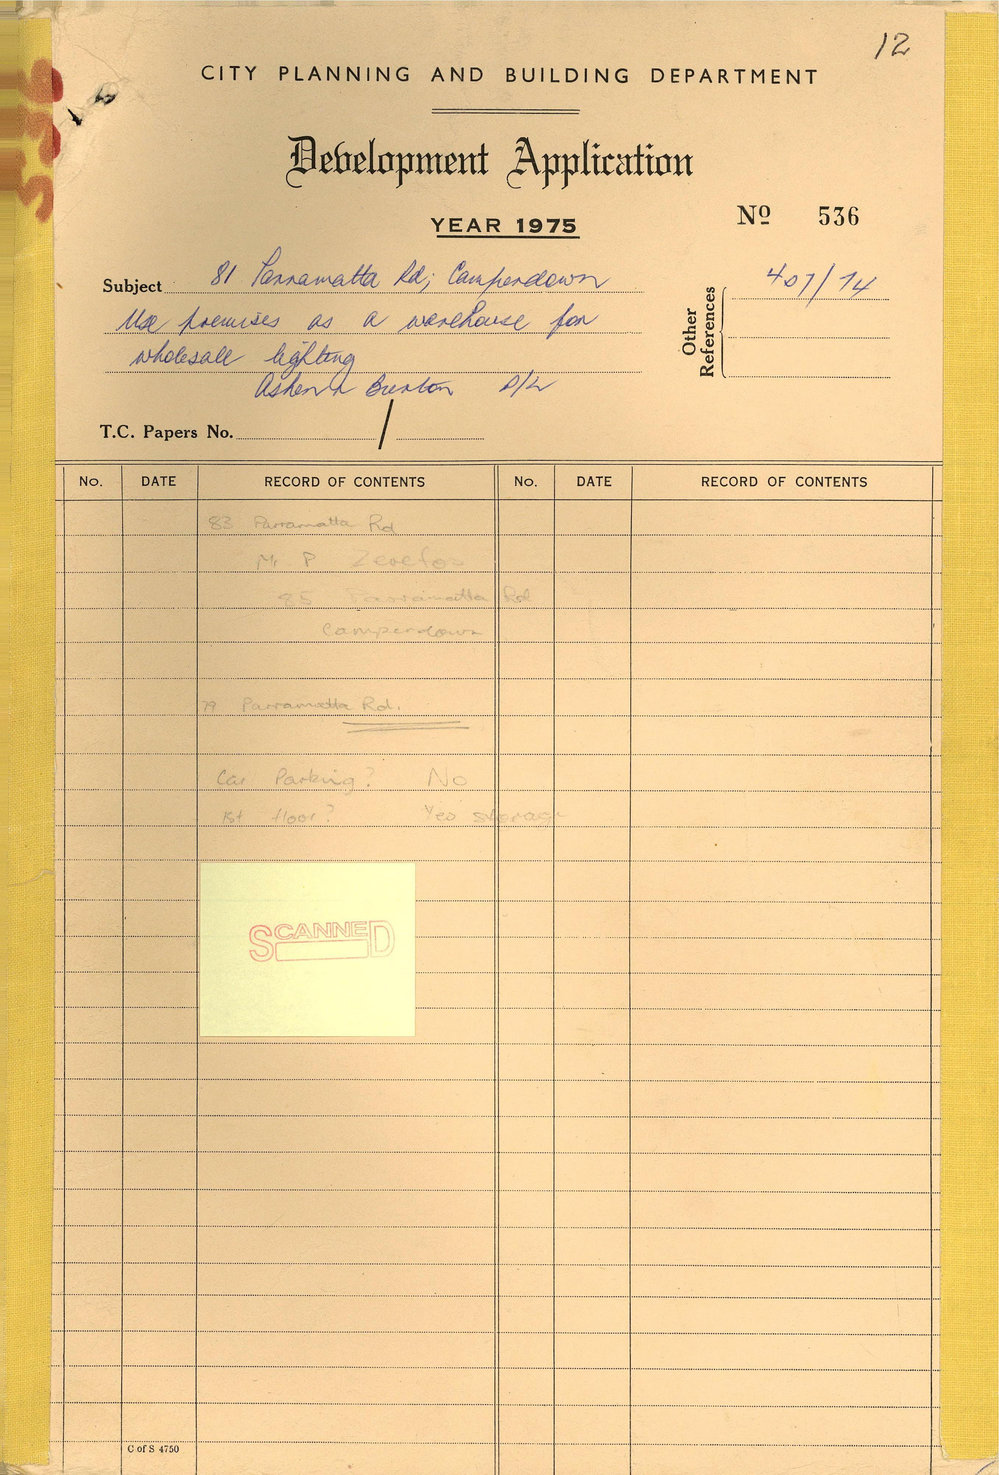 12
CITY PLANNING AND BUILDING DEPARTMENT
Development Application
YEAR 1975
Nº 536
Subject 81 Parramatta Rd; Camperdown
Use premises as a warehouse for
wholesale lighting
Burton P/L
Other References 407/74
T.C. Papers No. /
No. DATE RECORD OF CONTENTS No. DATE RECORD OF CONTENTS
83 Parramatta Rd
Mr P
85 Parramatta Rd
Camperdown
79 Parramatta Rd.
Car Parking? No
1st floor? Yes storage
SCANNED
C of S 4750
536